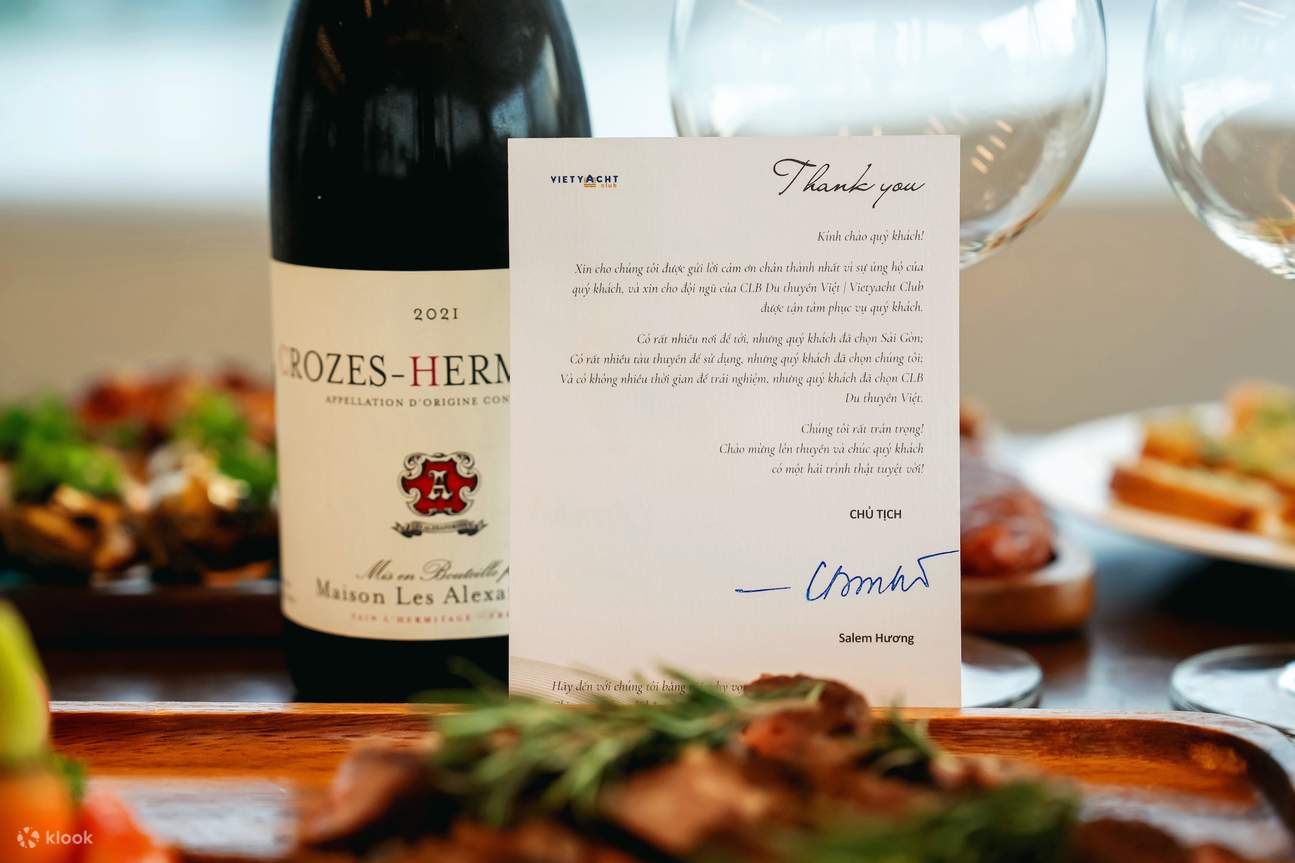 2021
CROZES-HERM
APPELLATION D'ORIGINE CON
A
Mis en Bouteille p
Maison Les Alexa
TAIN L'HERMITAGE - FR
VIETYACHT
club
Thank you
Kính chào quý khách!
Xin cho chúng tôi được gửi lời cảm ơn chân thành nhất vì sự ủng hộ của
quý khách, và xin cho đội ngũ của CLB Du thuyền Việt | Vietyacht Club
được tận tâm phục vụ quý khách.
Có rất nhiều nơi để tới, nhưng quý khách đã chọn Sài Gòn;
Có rất nhiều tàu thuyền để sử dụng, nhưng quý khách đã chọn chúng tôi;
Và có không nhiều thời gian để trải nghiệm, nhưng quý khách đã chọn CLB
Du thuyền Việt.
Chúng tôi rất trân trọng!
Chào mừng lên thuyền và chúc quý khách
có một hải trình thật tuyệt vời!
CHỦ TỊCH
Salem Hương
Hãy đến với chúng tôi bằng
klook